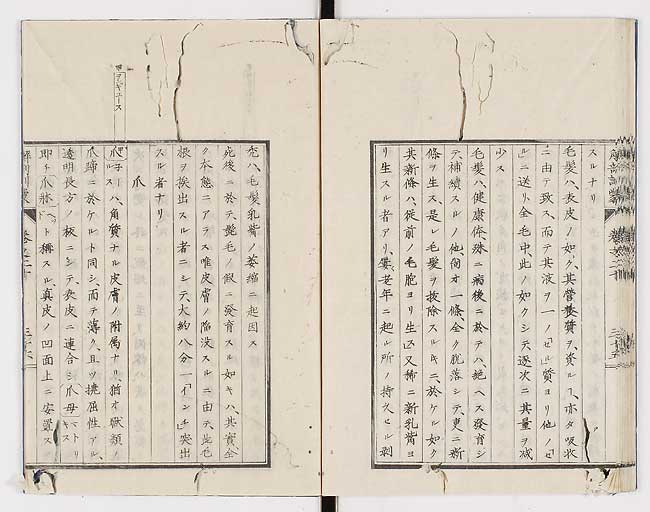 スルナリ
毛髮ハ、表皮ノ如ク、其營養質ヲ資ルヿ、亦タ吸收
ニ由テ致ス、而テ其液ヲ一ノ「セル」質ヨリ他ノ「セ
ル」ニ送リ、全毛中、此ノ如クシテ逐次ニ其量ヲ減
少ス
毛髮ハ、健康体、殊ニ病後ニ於テハ、絶ヘス發育シ
テ、補續スルノ他、尚オ一條、全ク脱落シテ、更ニ新
條ヲ生ス、是レ毛髮ヲ拔除スルキニ、於ケル如ク
其新條ハ、從前ノ毛胞ヨリ生ス、又稀ニ新乳觜ヨ
リ生スル者アリ、老年ニ起ル所ノ持久セル剥
禿ハ、毛髮乳觜ノ萎縮ニ起因ス
死後ニ於テ、髭毛ノ假ニ發育スル如キハ、其實、全
ク本態ニアラス、唯皮膚ノ陥没スルニ由テ、是毛
根ヲ挨出スル者ニシテ、大約八分一「インチ」突出
スル者ナリ
爪
爪ハ、角質ナル皮膚ノ附属ナリ、猶オ獸類ノ
爪蹄ニ於ケルト同シ、而テ薄ク、且ツ撓屈性アル、
透明長方ノ板ニシテ、表皮ニ連合シ
即チ爪牀ト稱スル真皮ノ凹面上ニ安置ス
ヲギュース
爪母